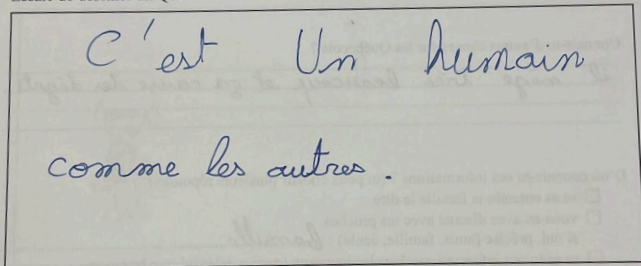 C'est Un humain
comme les autres.